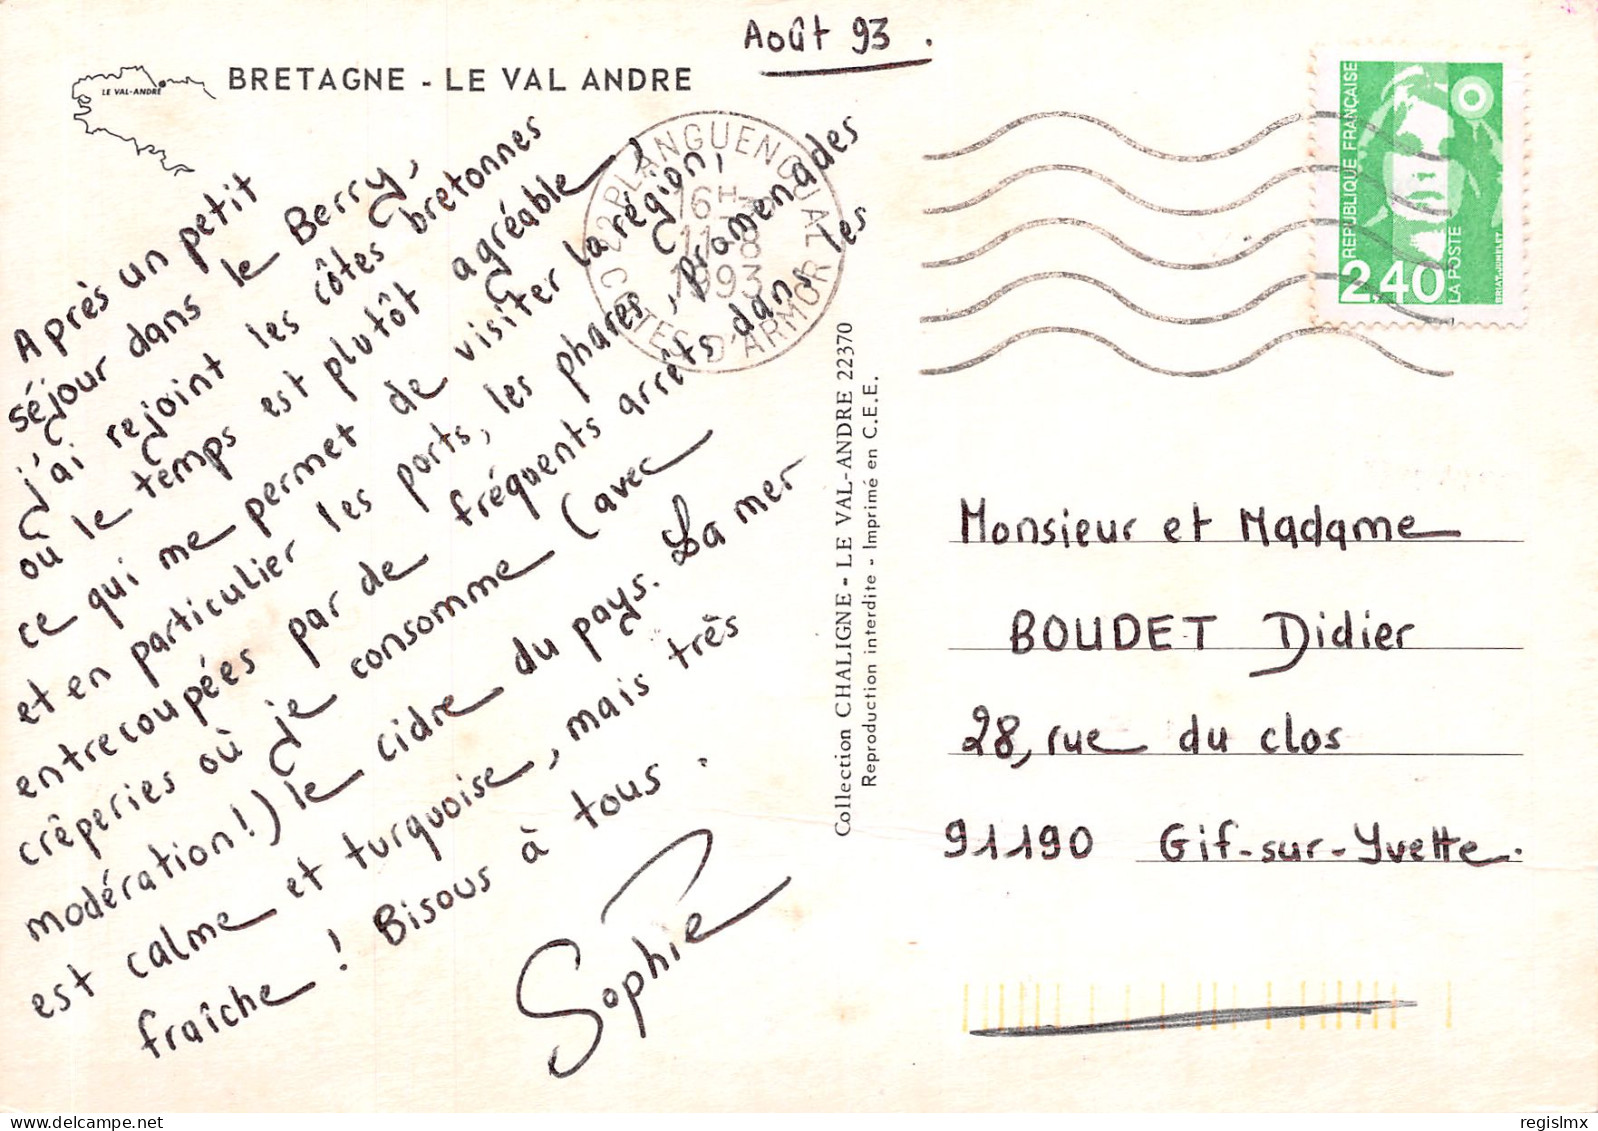 Août 93.
BRETAGNE - LE VAL ANDRE
LE VAL-ANDRÉ
Après un petit
séjour dans le Berry,
j'ai rejoint les côtes bretonnes
où le temps est plutôt agréable !
ce qui me permet de visiter la région,
et en particulier les ports, les phares, promenades
entrecoupées par de fréquents arrêts dans les
crêperies où je consomme (avec
modération !) le cidre du pays. La mer
est calme et turquoise, mais très
fraîche ! Bisous à tous.
Sophie
22 PLANGUENOUAL
16H
11-8
1993
COTES D'ARMOR
Collection CHALIGNE - LE VAL-ANDRE 22370
Reproduction interdite - Imprimé en C.E.E.
REPUBLIQUE FRANÇAISE
2,40
LA POSTE
BRIAT-JUMELET
Monsieur et Madame
BOUDET Didier
28, rue du clos
91190 Gif-sur-Yvette.
regislmx